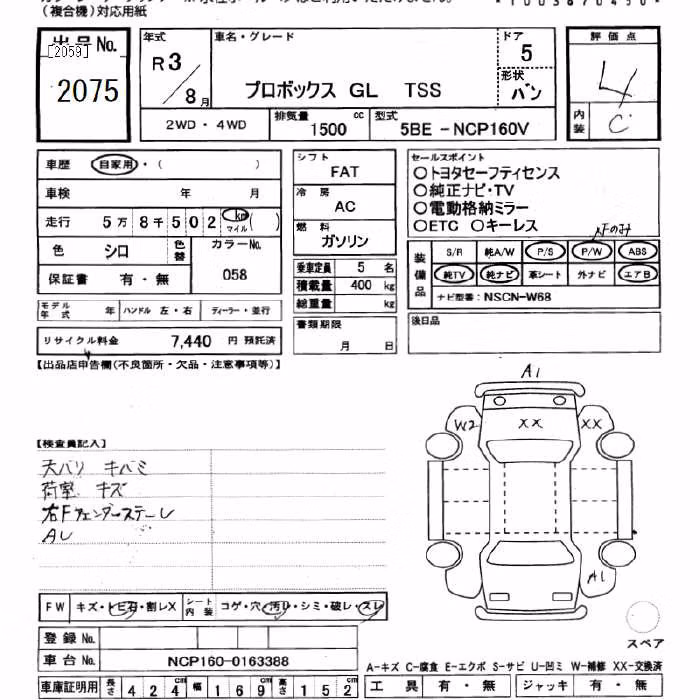 (複合機)対応用紙
出品No.
[2059]
2075
年式
R3/8月
車名・グレード
プロボックス GL TSS
ドア
5
形状
バン
評価点
4
内装
C
2WD・4WD
排気量
1500 cc
型式
5BE-NCP160V
車歴 自家用・( )
車検 年 月
走行 5万8千502 km マイル ( )
色 シロ
色替
カラーNo.
058
保証書 有・無
シフト
FAT
冷房
AC
燃料
ガソリン
セールスポイント
○トヨタセーフティセンス
○純正ナビ・TV
○電動格納ミラー
○ETC ○キーレス
装備品
S/R 純A/W P/S P/W ABS
純TV 純ナビ 革シート 外ナビ エアB
ナビ型番:NSCN-W68
乗車定員 5 名
積載量 400 kg
総重量 kg
モデル年式 年 ハンドル 左・右 ディーラー・並行
リサイクル料金 7,440 円 預託済
書類期限
月 日
後日品
【出品店申告欄(不良箇所・欠品・注意事項等)】
A1
W2 XX XX
A1
【検査員記入】
天バリ キバミ
荷室 キズ
右Fフェンダーステーレ
AU
FW キズ・トビ石・割レX
シート内装 コゲ・穴・汚レ・シミ・破レ・スレ
スペア
登録No.
車台No. NCP160-0163388
A-キズ C-腐食 E-エクボ S-サビ U-凹ミ W-補修 XX-交換済
車庫証明用 長さ 424 cm 幅 169 cm 高さ 152 cm
工具 有・無 ジャッキ 有・無